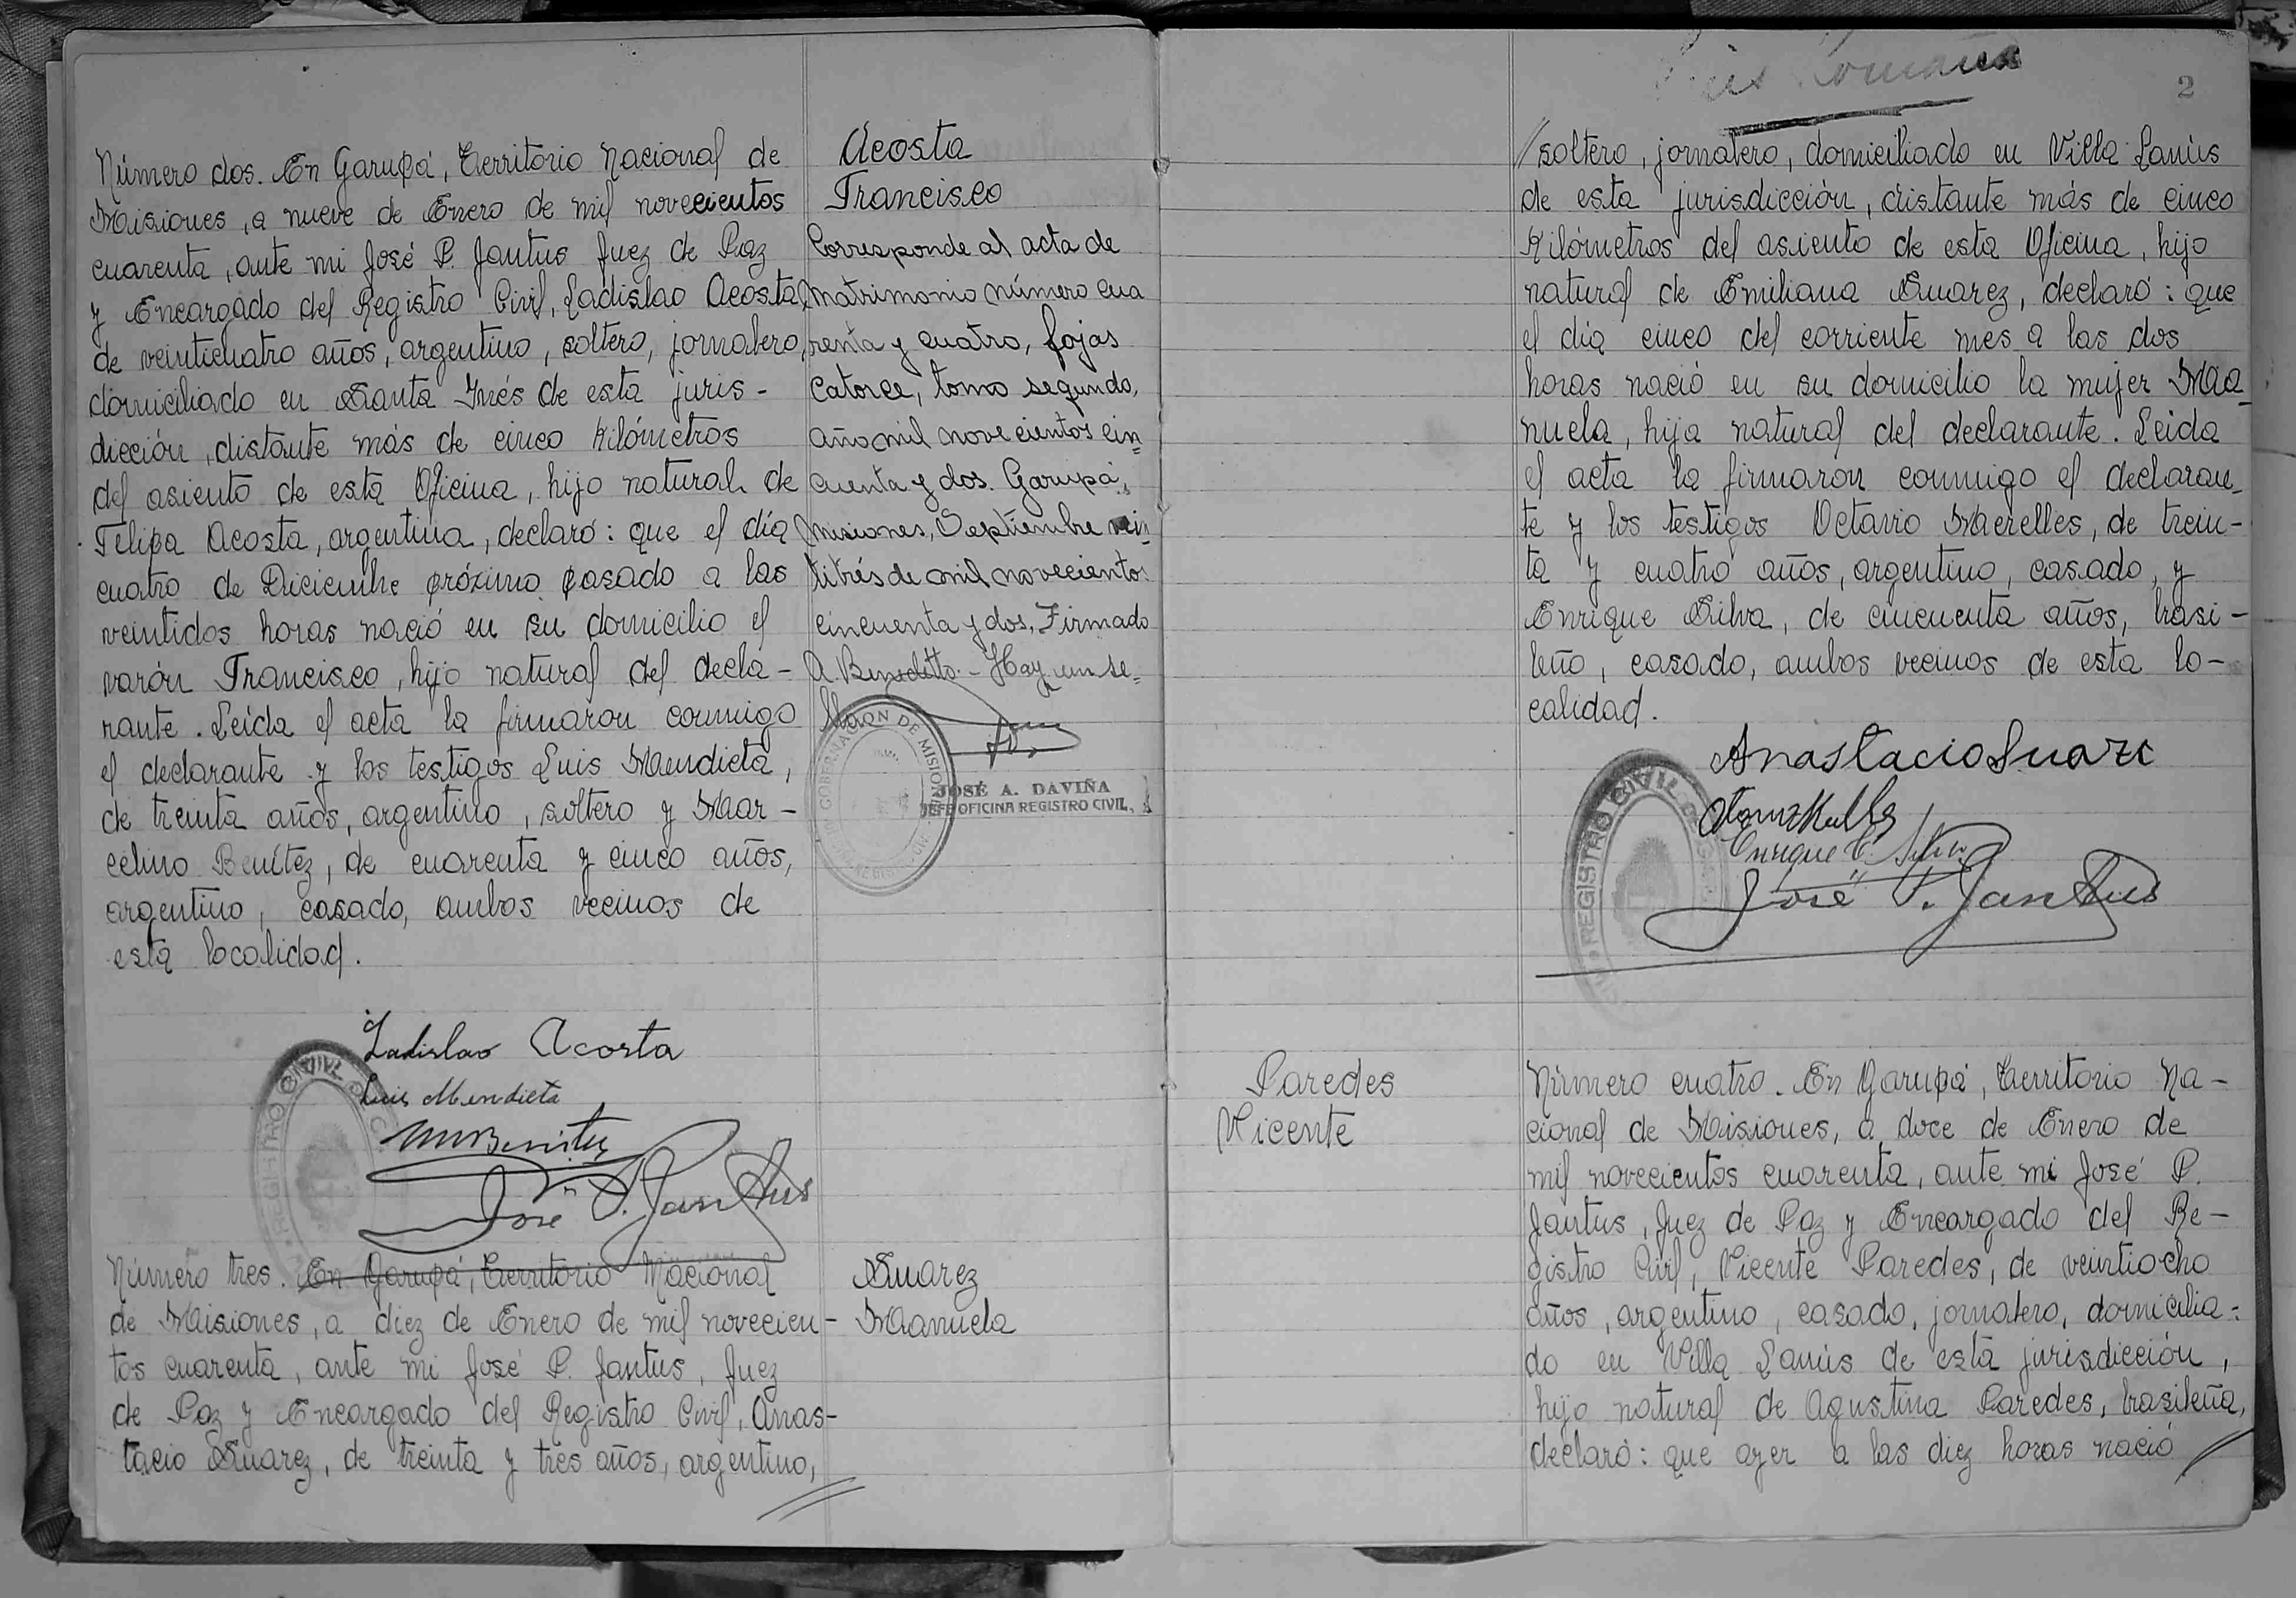 Número dos. En Garupá, Territorio Nacional de
Misiones, a nueve de Enero de mil novecientos
cuarenta, ante mi José P. Jantus Juez de Paz
y Encargado del Registro Civil, Ladislao Acosta,
de veinticuatro años, argentino, soltero, jornalero,
domiciliado en Santa Inés de esta juris-
dicción, distante más de cinco Kilómetros
del asiento de esta Oficina, hijo natural de
Felipa Acosta, argentina, declaró: que el día
cuatro de Diciembre próximo pasado a las
veintidos horas nació en su domicilio el
varón Francisco, hijo natural del decla-
rante. Leída el acta la firmaron conmigo
el declarante y los testigos Luis Mendieta,
de treinta años, argentino, soltero y Mar-
celino Benítez, de cuarenta y cinco años,
argentino, casado, ambos vecinos de
esta localidad.
Ladislao Acosta
Luis Mendieta
M Benitez
José P. Jantus
REGISTRO CIVIL
Acosta
Francisco
Corresponde al acta de
matrimonio número cua
renta y cuatro, fojas
catorce, tomo segundo,
año mil novecientos cin=
cuenta y dos. Garupá,
Misiones, Septiembre vein=
titrés de mil novecientos
cincuenta y dos. Firmado
A. Benedetto.- Hay un se=
llo.
GOBERNACION DE MISIONES
JOSÉ A. DAVIÑA
JEFE OFICINA REGISTRO CIVIL
Número tres. En Garupá, Territorio Nacional
de Misiones, a diez de Enero de mil novecien-
tos cuarenta, ante mi José P. Jantus, Juez
de Paz y Encargado del Registro Civil, Anas-
tacio Suarez, de treinta y tres años, argentino, //
Suarez
Manuela
2
// soltero, jornalero, domiciliado en Villa Lanús
de esta jurisdicción, distante más de cinco
Kilómetros del asiento de esta Oficina, hijo
natural de Emiliana Suarez, declaró: que
el día cinco del corriente mes a las dos
horas nació en su domicilio la mujer Ma-
nuela, hija natural del declarante. Leida
el acta la firmaron conmigo el declaran-
te y los testigos Octavio Merelles, de trein-
ta y cuatro años, argentino, casado, y
Enrique Silva, de cincuenta años, brasi-
leño, casado, ambos vecinos de esta lo-
calidad.
Anastacio Suarz
Enrique C. Silva
José P. Jantus
REGISTRO CIVIL
Paredes
Vicente
Número cuatro. En Garupá, Territorio Na-
cional de Misiones, a doce de Enero de
mil novecientos cuarenta, ante mi José P.
Jantus, Juez de Paz y Encargado del Re-
gistro Civil, Vicente Paredes, de veintiocho
años, argentino, casado, jornalero, domicilia-
do en Villa Lanús de esta jurisdicción,
hijo natural de Agustina Paredes, brasileña,
declaró: que ayer a las diez horas nació //